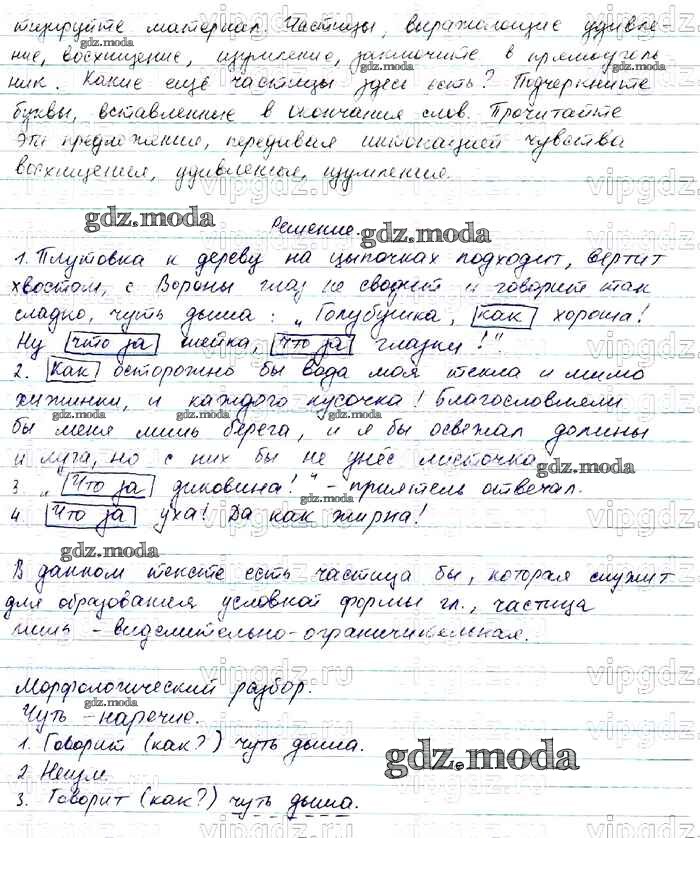 тизируйте материал. Частицы, выражающие удивле-
ние, восхищение, изумление, заключите в прямоуголь
ник. Какие ещё частицы здесь есть? Подчеркните
буквы, вставленные в окончания слов. Прочитайте
эти предложения, передавая интонацией чувства
восхищения, удивления, изумления.
Решение.
1. Плутовка к дереву на цыпочках подходит, вертит
хвостом, с Вороны глаз не сводит и говорит так
сладко, чуть дыша: „Голубушка, как хороша!
Ну что за шейка, что за глазки!".
2. Как осторожно бы вода моя текла и мимо
хижинки, и каждого кусочка! Благословляли
бы меня лишь берега, и я бы освежал долины
и луга, но с них бы не унёс листочка.
3 „Что за диковина!" - приятель отвечал.
4 Что за уха! Да как жирна!
В данном тексте есть частица бы, которая служит
для образования условной формы гл., частица
лишь - выделительно-ограничительная.
Морфологический разбор.
Чуть - наречие.
1. Говорит (как?) чуть дыша.
2 Неизм
3. Говорит (как?) чуть дыша.
gdz.moda
vipgdz.ru